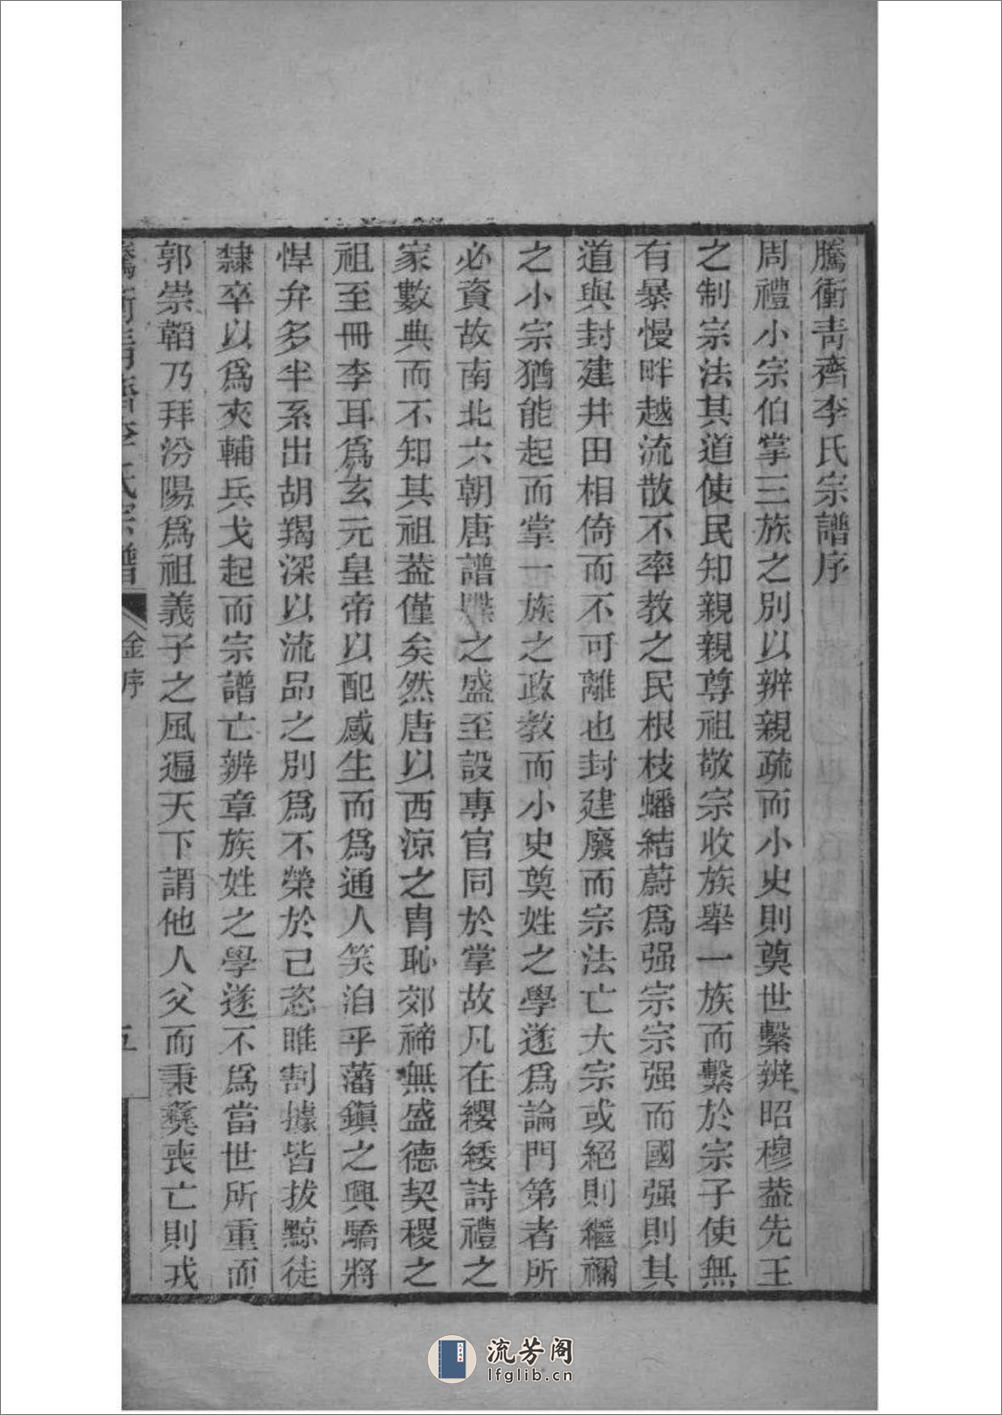 騰衝靑齊李氏宗譜序
周禮小宗伯掌三族之別以辨親疏而小史則奠世繫辨昭穆葢先王
之制宗法其道使民知親親尊祖敬宗收族舉一族而繫於宗子使無
有暴慢畔越流散不率教之民根枝蟠結蔚爲强宗宗强而國强則其
道與封建井田相倚而不可離也封建廢而宗法亡大宗或絕則繼禰
之小宗猶能起而掌一族之政教而小史奠姓之學遂爲論門第者所
必資故南北六朝唐譜牒之盛至設專官同於掌故凡在纓緌詩禮之
家數典而不知其祖葢僅矣然唐以西涼之胄恥郊禘無盛德契稷之
祖至冊李耳爲玄元皇帝以配感生而爲通人笑洎乎藩鎭之興驕將
悍弁多半系出胡羯深以流品之別爲不榮於己恣睢割據皆拔黥徒
隸卒以爲夾輔兵戈起而宗譜亡辨章族姓之學遂不爲當世所重而
郭崇韜乃拜汾陽爲祖義子之風遍天下謂他人父而秉彝喪亡則戎
騰衝靑齊李氏宗譜
金序
五
流芳阁
lfglib.cn